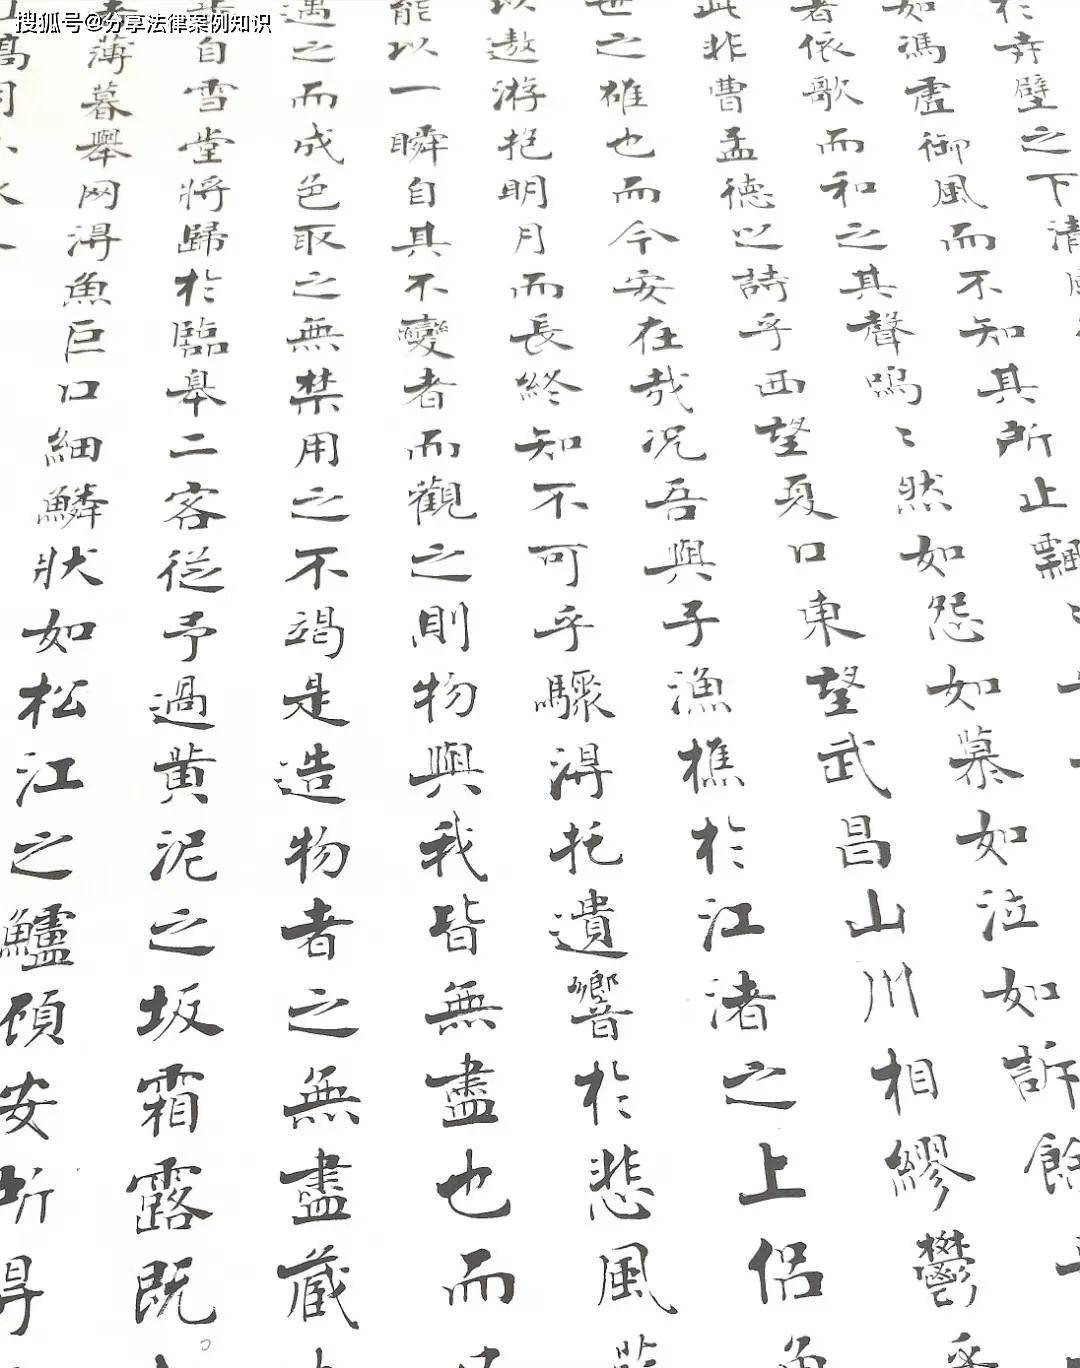 搜狐号@分享法律案例知识
於赤壁之下清
如馮虛御風而不知其所止飄
者依歌而和之其聲嗚〻然如怨如慕如泣如訴餘
此非曹孟德以詩乎西望夏口東望武昌山川相繆鬱
世之雄也而今安在哉況吾與子漁樵於江渚之上侶
以遨游抱明月而長終知不可乎驟得托遺響於悲風
能以一瞬自其不變者而觀之則物與我皆無盡也而
遇之而成色取之無禁用之不竭是造物者之無盡藏
步自雪堂將歸於臨皋二客從予過黃泥之坂霜露既
薄暮舉网得魚巨口細鱗狀如松江之鱸顧安所得
高月